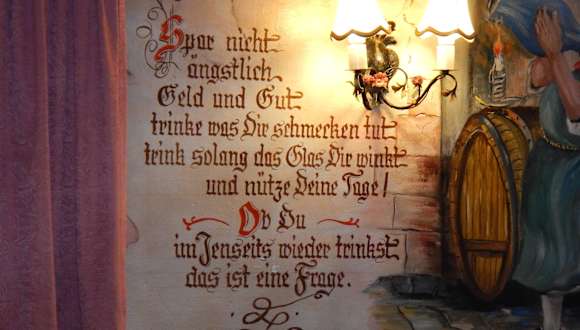 Spar nicht
ängstlich
Geld und Gut
trinke was Dir schmecken tut
trink solang das Glas Dir winkt
und nütze Deine Tage!
Ob Du
im Jenseits wieder trinkst
das ist eine Frage.